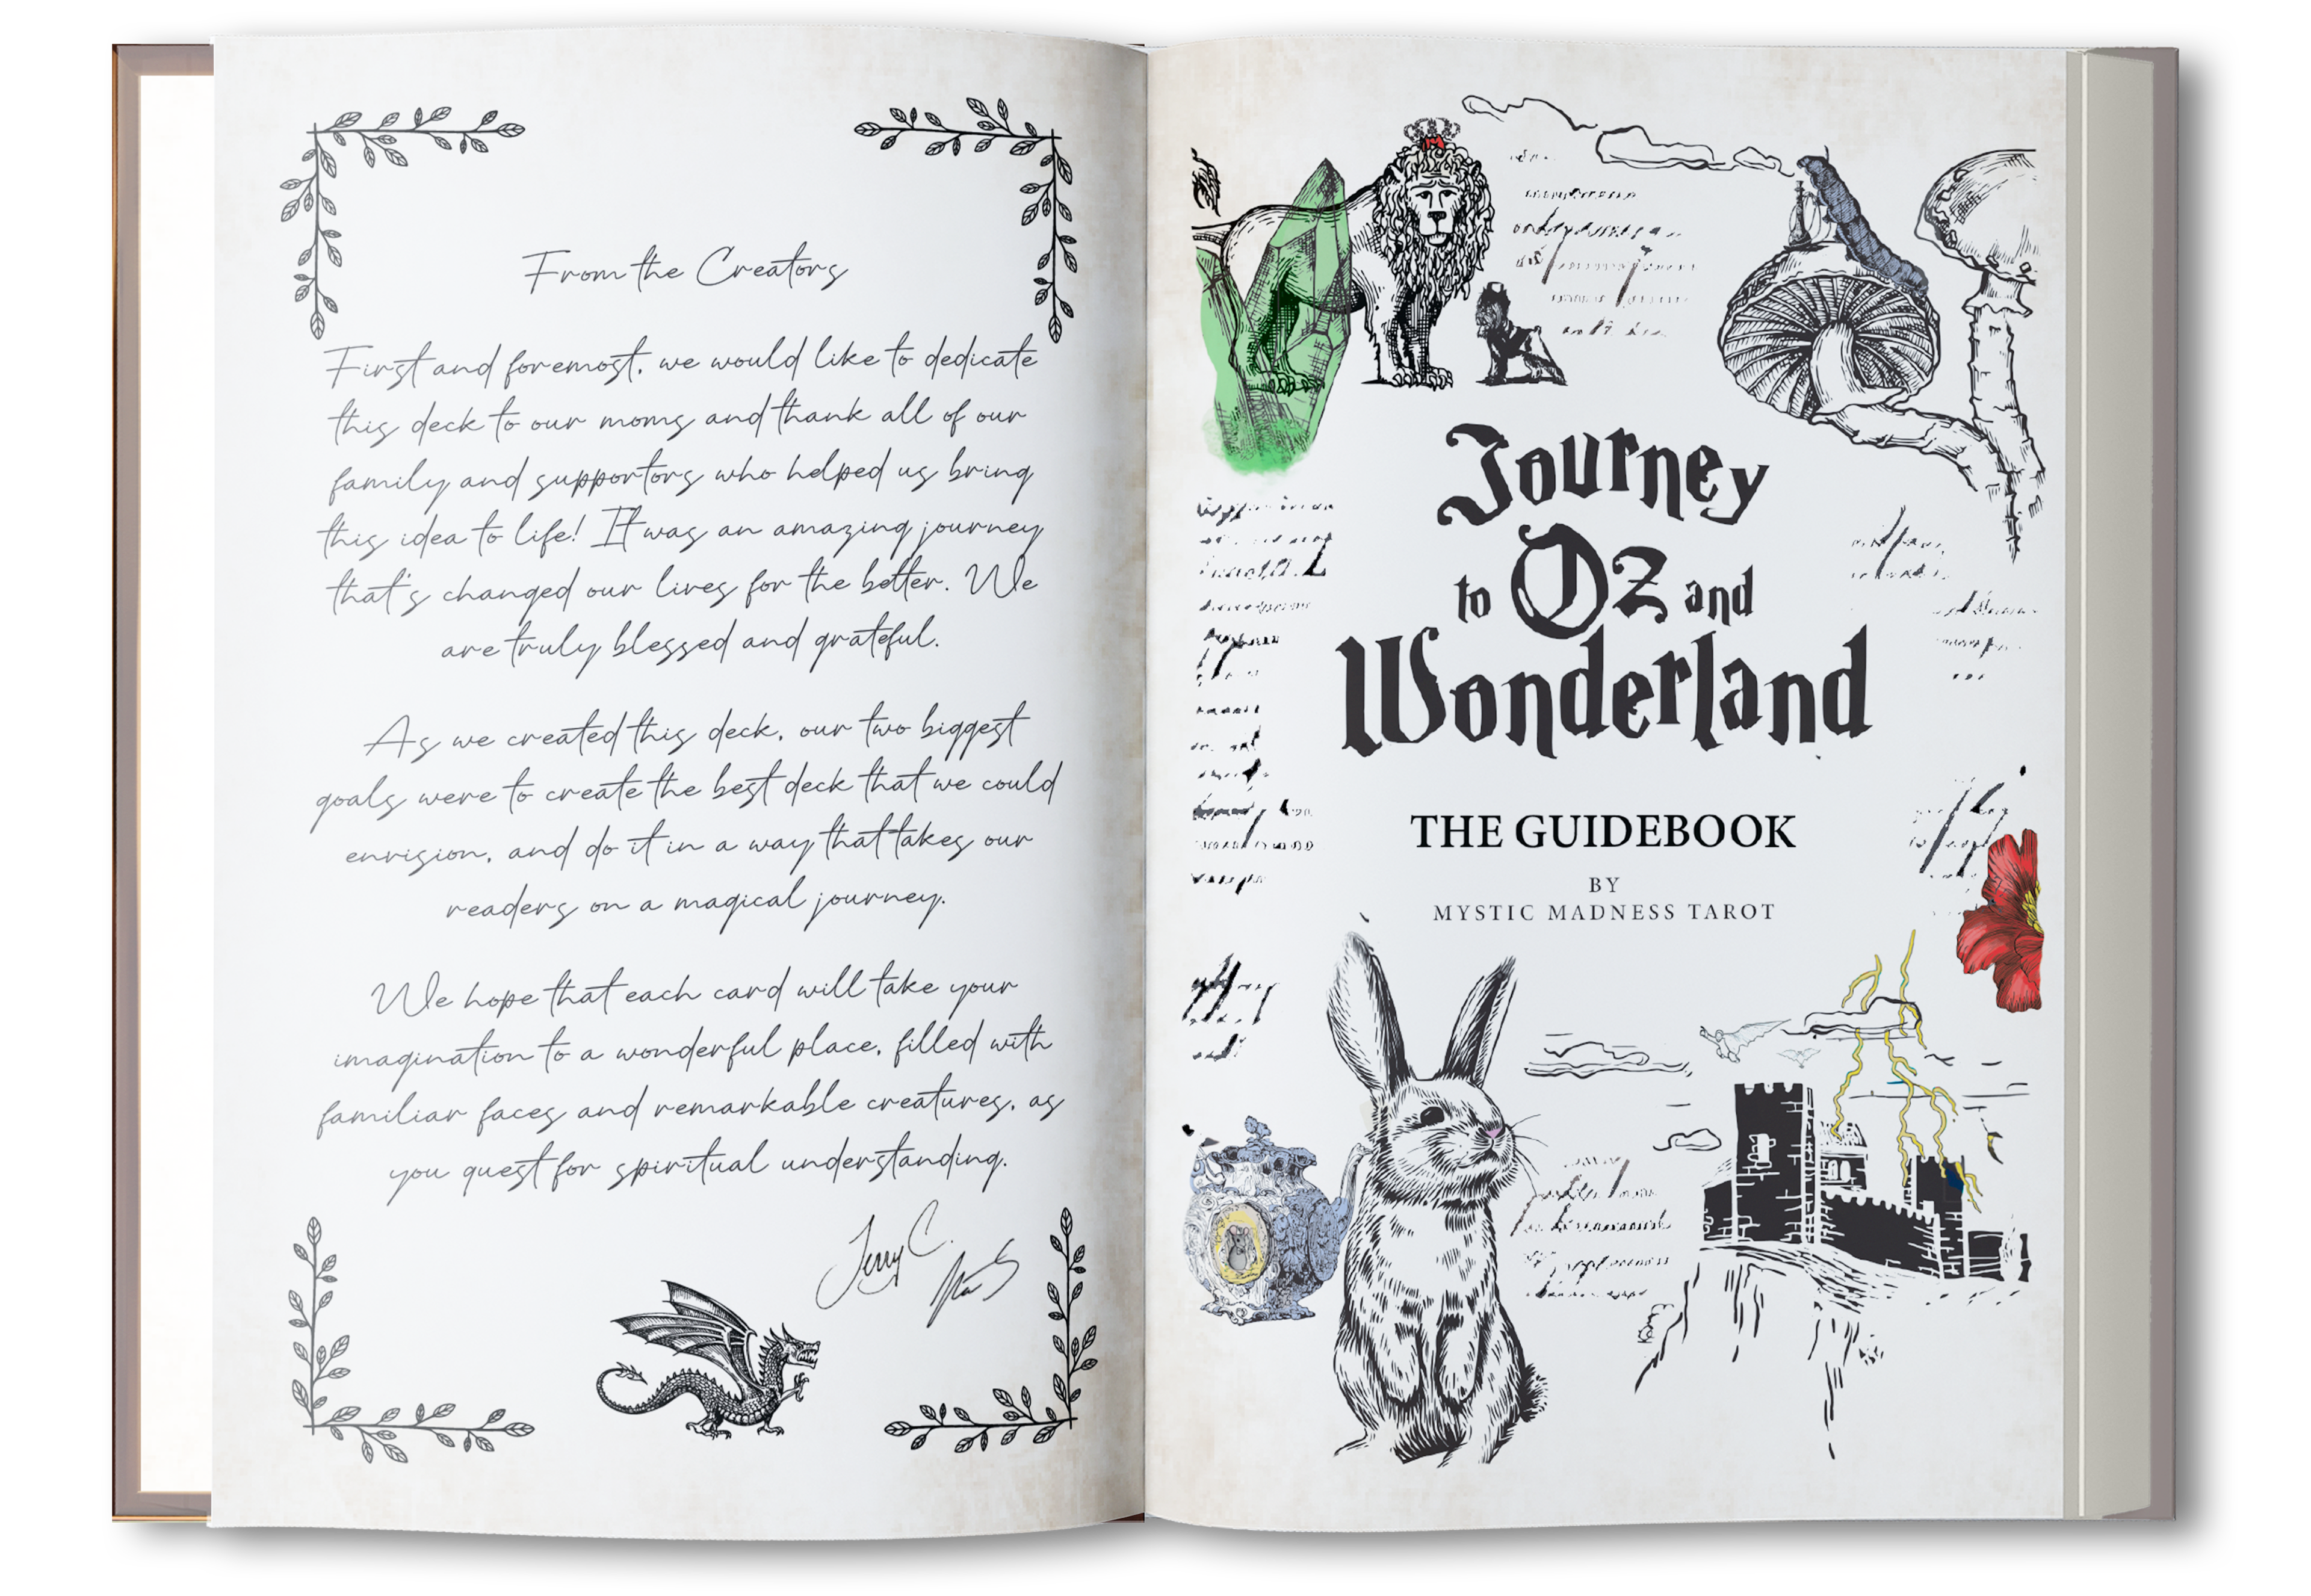 From the Creators
First and foremost, we would like to dedicate
this deck to our moms and thank all of our
family and supportors who helped us bring
this idea to life! It was an amazing journey
that's changed our lives for the better. We
are truly blessed and grateful.
As we created this deck, our two biggest
goals were to create the best deck that we could
envision, and do it in a way that takes our
readers on a magical journey.
We hope that each card will take your
imagination to a wonderful place, filled with
familiar faces and remarkable creatures, as
you quest for spiritual understanding.
Jerry C.
Journey
to Oz and
Wonderland
THE GUIDEBOOK
BY
MYSTIC MADNESS TAROT